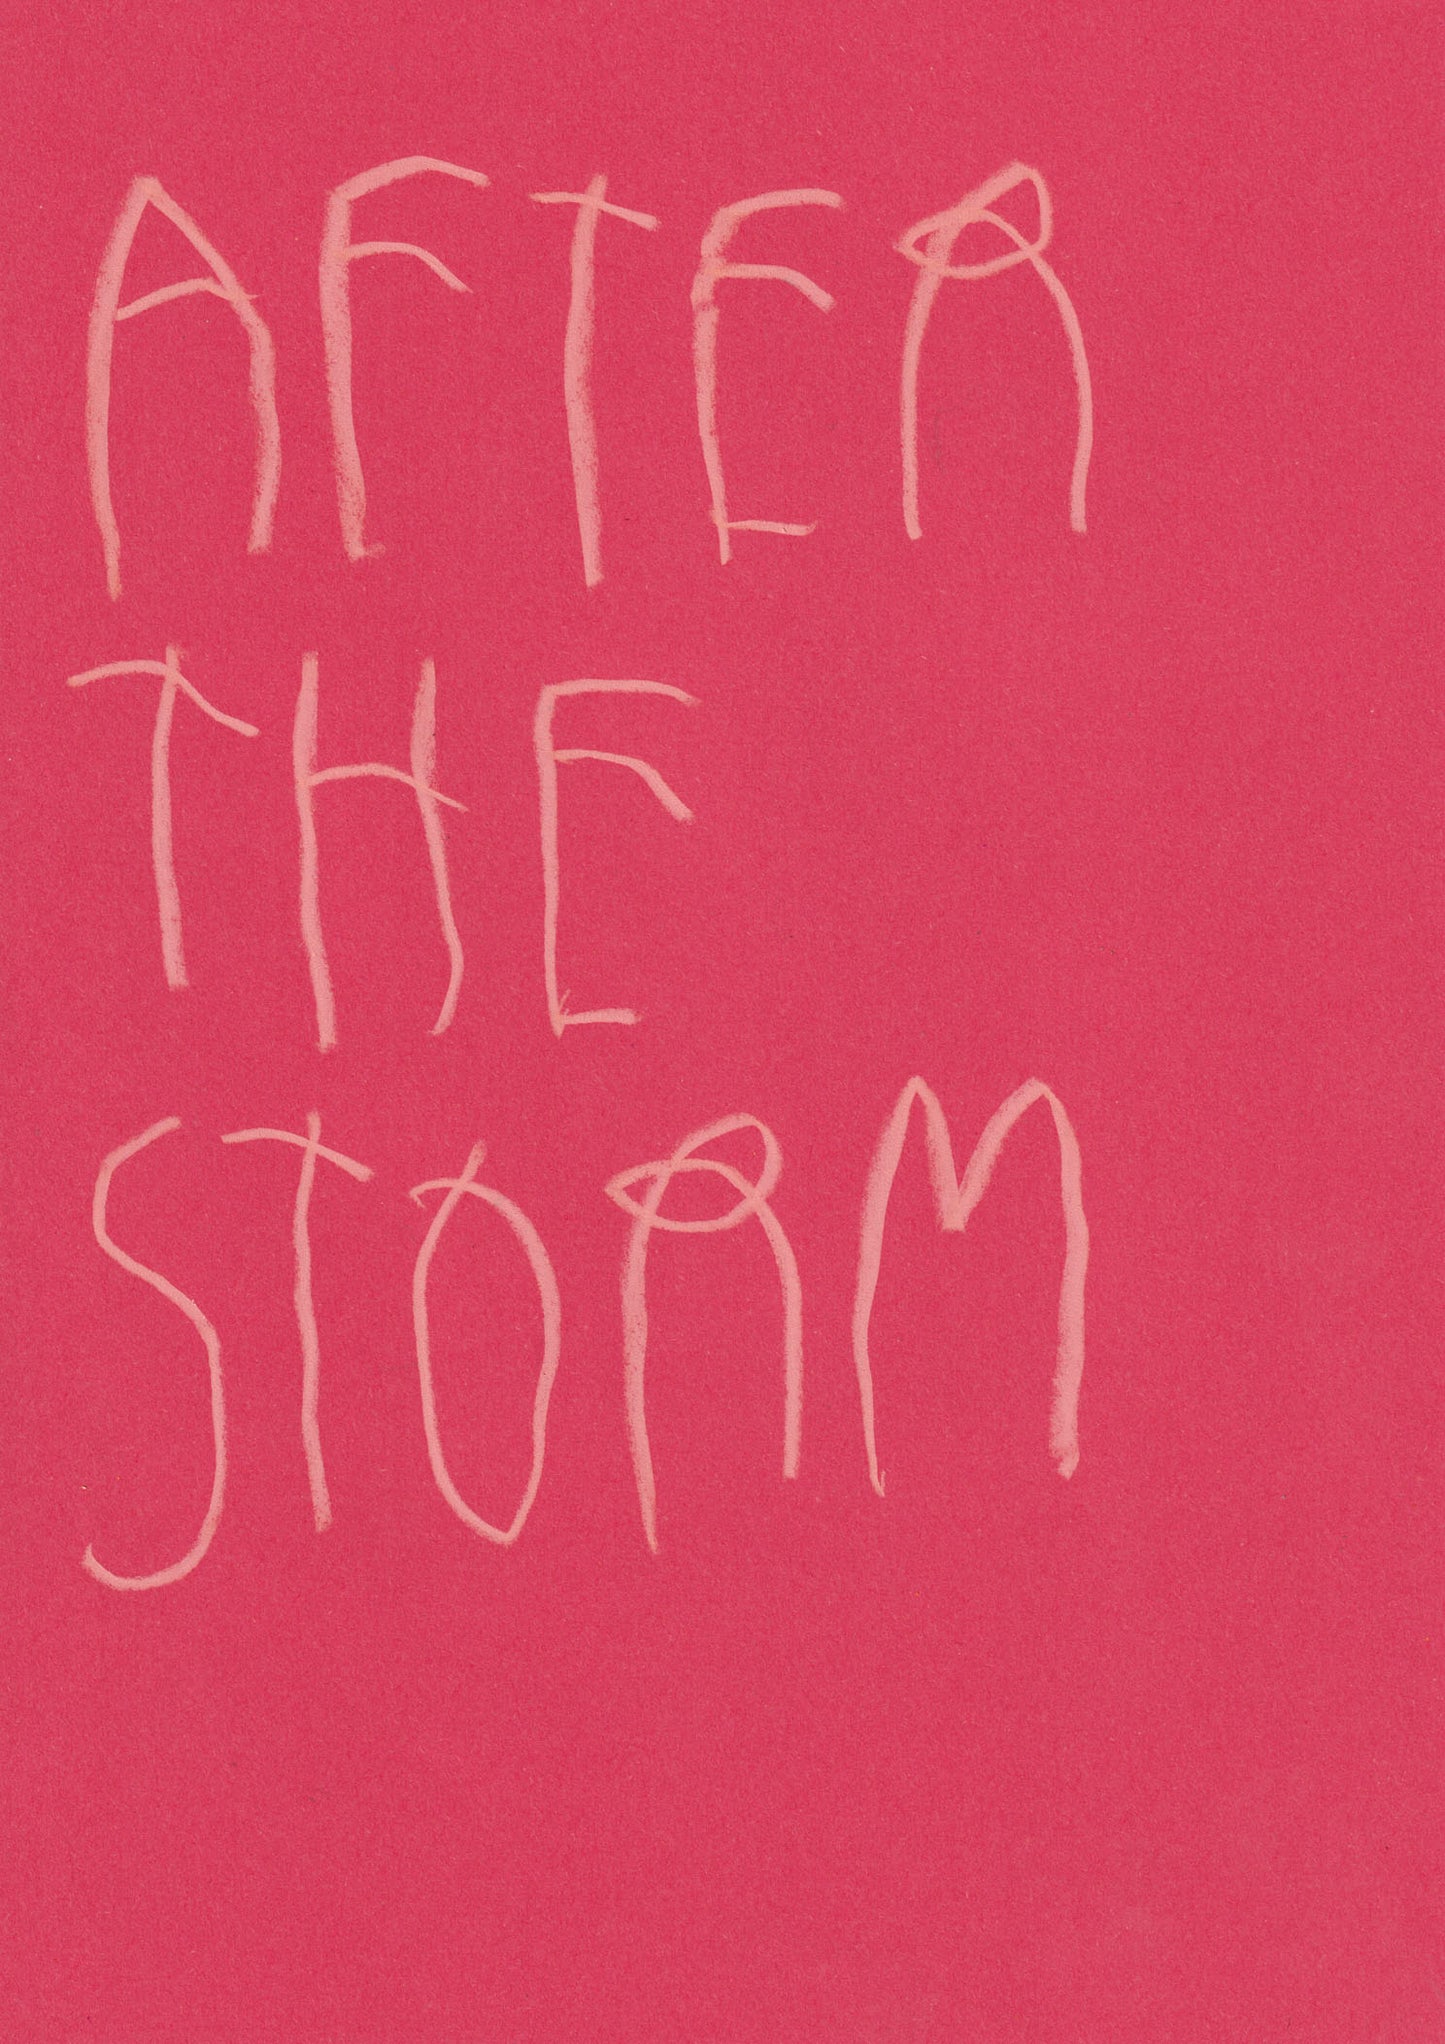 AFTER
THE
STORM